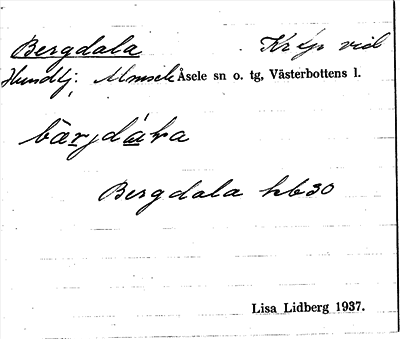 Bergdala Kr lp vid
Hundtj; Umsele Åsele sn o. tg, Västerbottens l.
bærjdála
Bergdala hb30
Lisa Lidberg 1937.